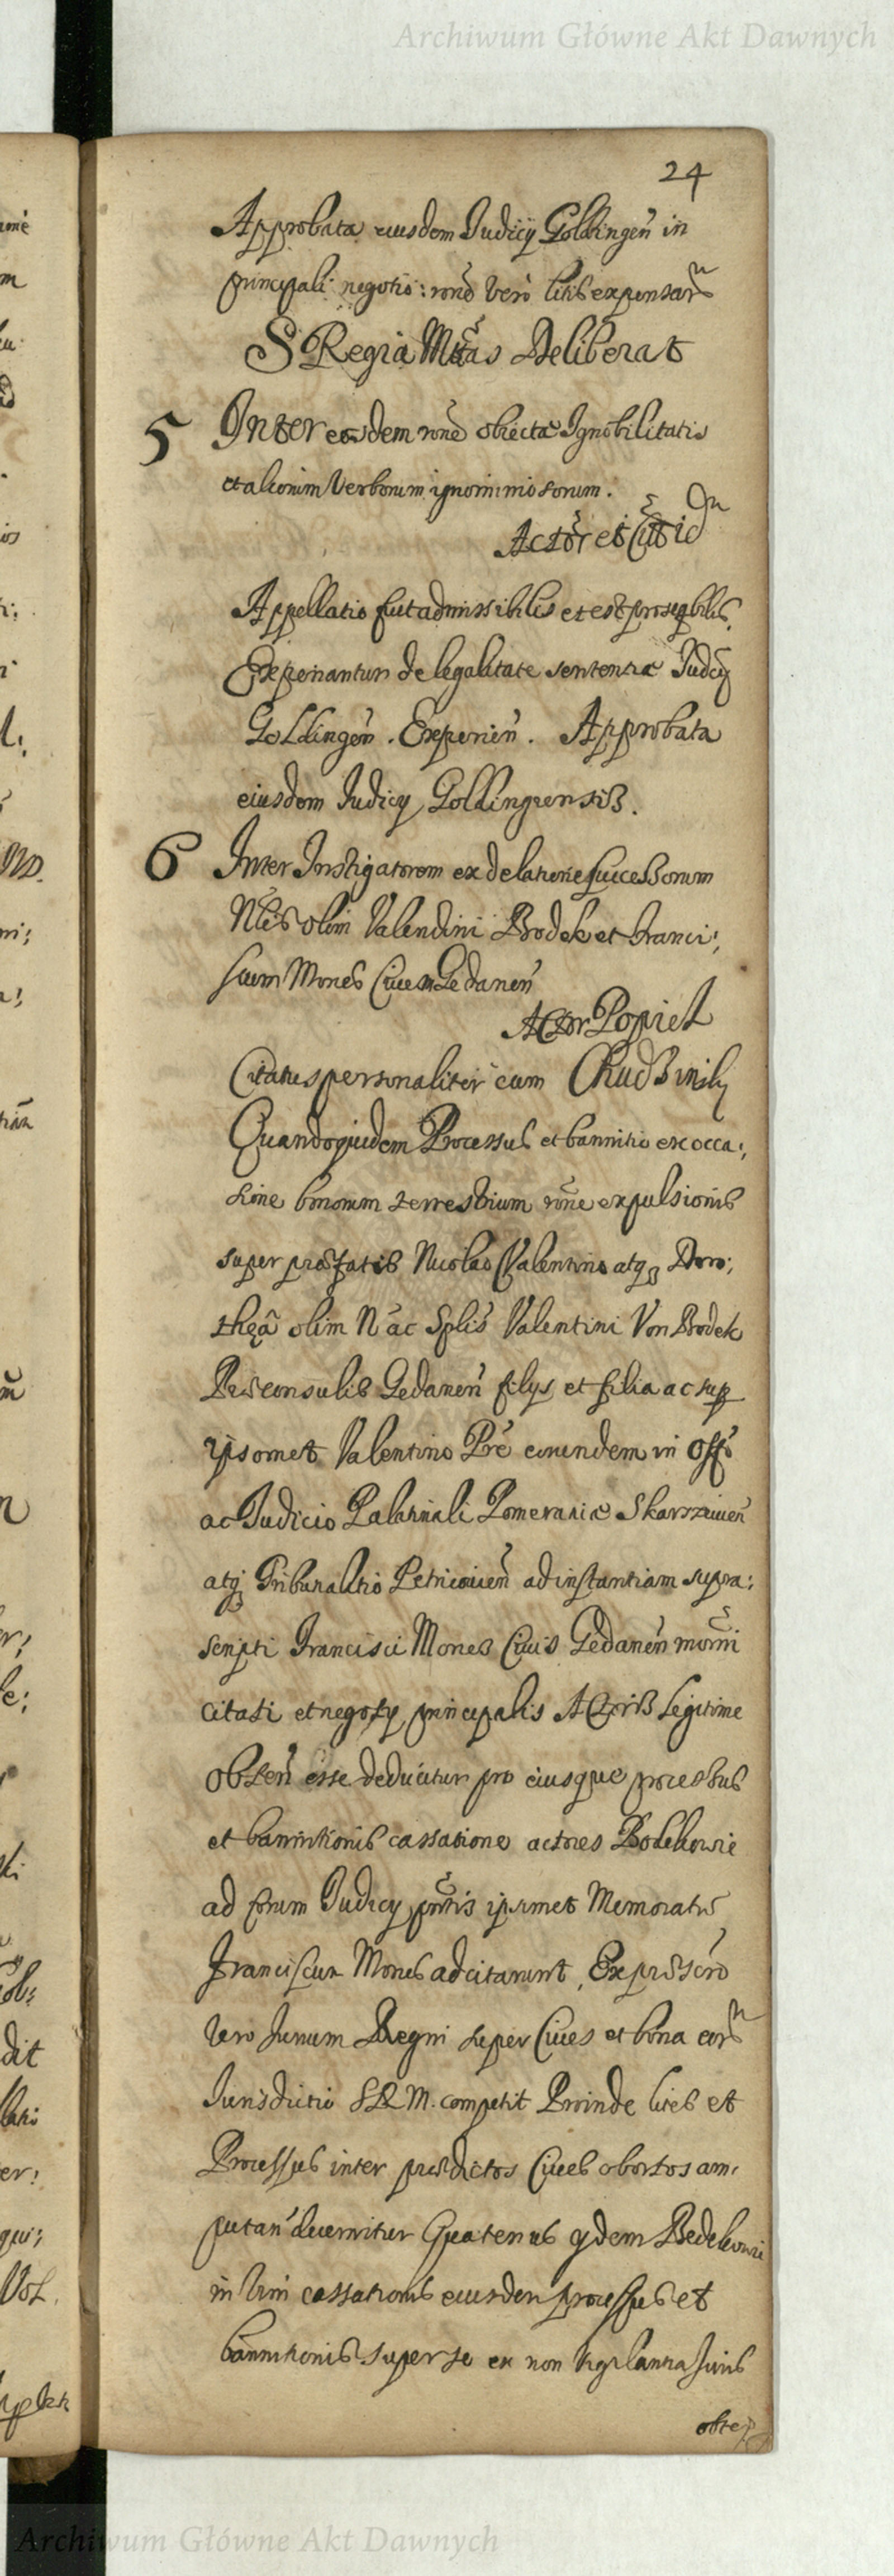 Archiwum Główne Akt Dawnych
24
Approbata eiusdem Judicij Goldingeñ in
principali negotio: rone vero litis expensarũ
S Regia Mtas Deliberat
5 Inter eosdem rone obiectæ Ignobilitatis
et aliorum Verborum ignominiosorum.
Actor et
Appellatio fuit admissibilis et est
Experiantur de legalitate sententiæ Judicij
Goldingeñ. Experieñ. Approbata
eiusdem Judicij Goldingensis.
6 Inter Instigatorem ex delatione Successorum
Nlis olim Valentini Brodek et Franci:
scum Mones Civem Gedaneñ
Actor Popiel
Citatus personaliter cum
Quandoquidem Processus et bannitio ex occa:
sione bonorum terrestrium rone expulsionis
super præfatis Nicolao Valentino atq Doro:
theâ olim N ac Splis Valentini Von Brodek
Præconsulis Gedaneñ filijs et filia ac sup
ipsomet Valentino Pre eorundem in Offo
ac Judicio Palatinali Pomeraniæ Skarszewieñ
atq Tribunalitio Petricovieñ ad instantiam supra:
scripti Francisci Mones Civis Gedaneñ moderni
citati et negotij principalis Actoris legitime
obteñ esse deducitur pro eiusque processus
et bannitionis cassatione actores Bodekowie
ad forum Judicij pntis ipsumet Memoratũ
Franciscum Mones adcitarunt, Ex
vero Jurium Regni super Cives et bona eorũ
Jurisdictio SRM. competit Proinde lites et
Processus inter prædictos Cives obortos am:
putan decernitur Quatenus ijdem Bedekowie
in vim cassationis eiusdem processus et
bannitionis super se ex non vigilantia Juris
obte
Archiwum Główne Akt Dawnych